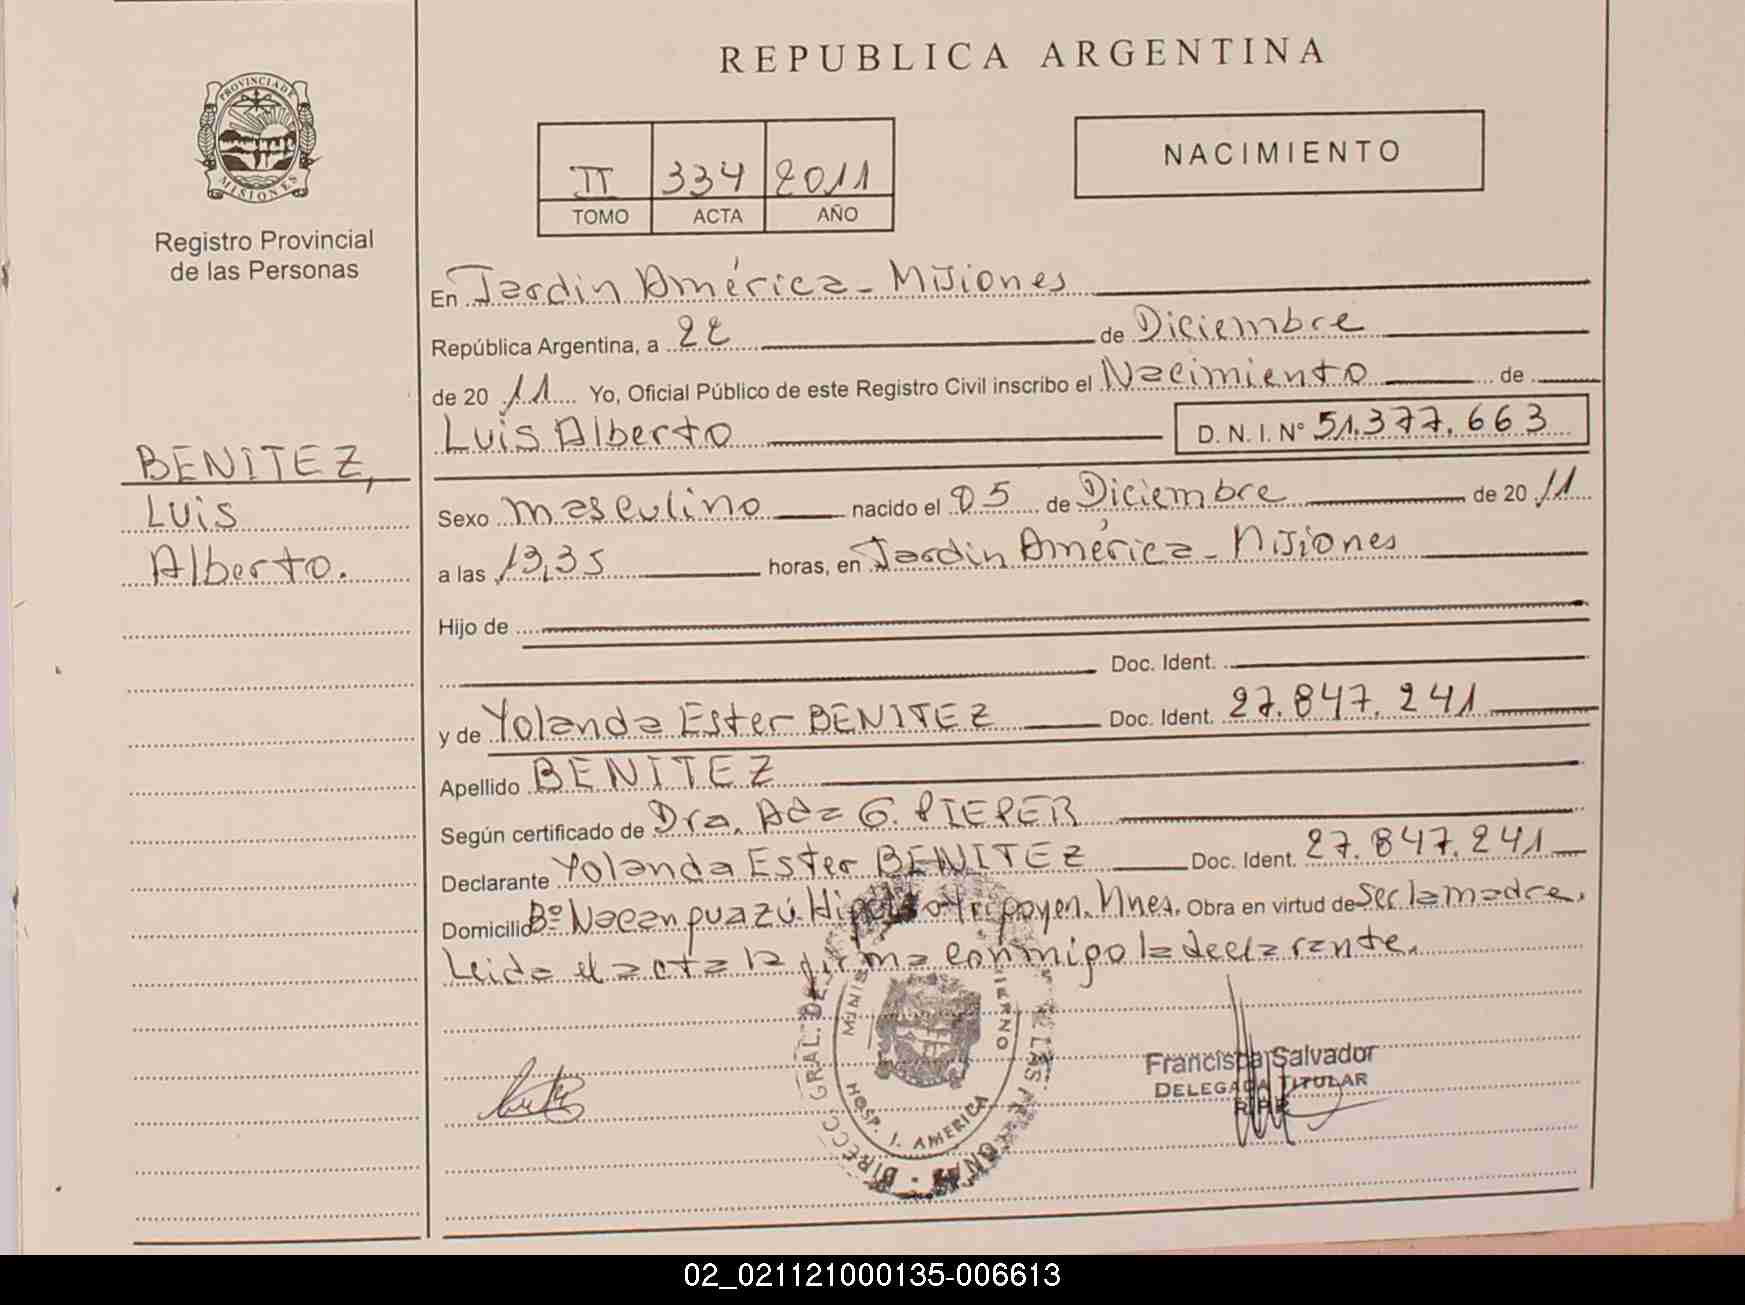 REPUBLICA ARGENTINA
PROVINCIA DE
MISIONES
Registro Provincial
de las Personas
II 334 2011
TOMO ACTA AÑO
NACIMIENTO
En Jardin América - Misiones
República Argentina, a 22 de Diciembre
de 20 11 Yo, Oficial Público de este Registro Civil inscribo el Nacimiento de
Luis Alberto D. N. I. N° 51.377.663
BENITEZ,
Luis
Alberto.
Sexo masculino nacido el 05 de Diciembre de 20 11
a las 13,35 horas, en Jardin América - Misiones
Hijo de
Doc. Ident.
y de Yolanda Ester BENITEZ Doc. Ident. 27.847.241
Apellido BENITEZ
Según certificado de Dra. Ada G. PIEPER
Declarante Yolanda Ester BENITEZ Doc. Ident. 27.847.241
Domicilio Bº Ñacanguazú. Hipólito Yrigoyen. Mnes. Obra en virtud de ser la madre.
Leida el acta la firma conmigo la declarante.
DIRECC. GRAL. DE LAS
HOSP. J. AMERICA
Francisca Salvador
DELEGADA TITULAR
R.P.P.
02_021121000135-006613